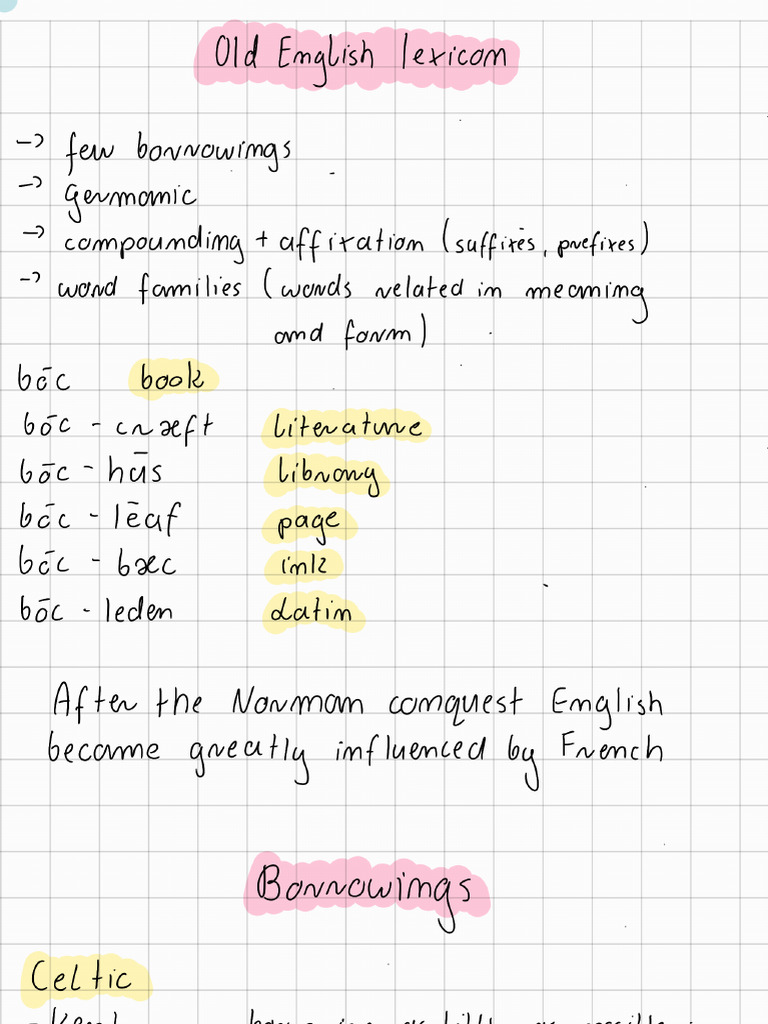 Old English lexicon
→ few borrowings
→ germanic
→ compounding + affixation (suffixes, prefixes)
→ word families (words related in meaning
and form)
bōc book
bōc - cræft literature
bōc - hūs library
bōc - lēaf page
bōc - bæc ink
bōc - leden latin
After the Norman conquest English
became greatly influenced by French
Borrowings
Celtic